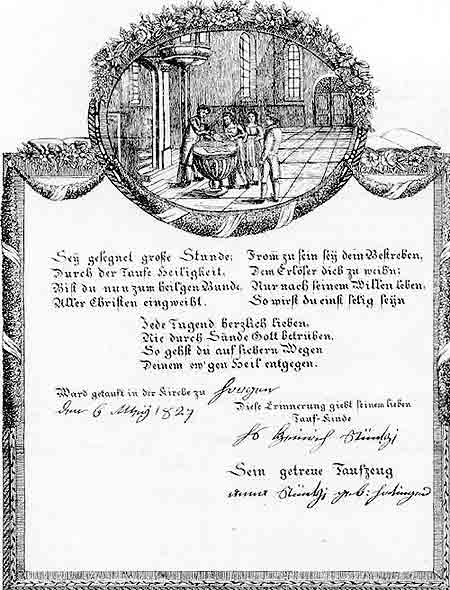 Sey gesegnet große Stunde;
Durch der Taufe Heiligkeit,
Bist du nun zum heilgen Bunde
Aller Christen eingweiht.
From zu sein sey dein Bestreben,
Dem Erlöser dich zu weihn;
Nur nach seinem Willen leben,
So wirst du einst selig seyn
Jede Tugend herzlich lieben,
Nie durch Sünde Gott betrüben,
So gehst du auf sichern Wegen
Deinem ew'gen Heil entgegen.
Ward getauft in der Kirche zu Horgen
den 6 May 1827
Diese Erinnerung giebt seinem lieben
Tauf-Kinde
Hs Heinrich Stünzi
Sein getreue Taufzeug
Anna Stünzi geb: